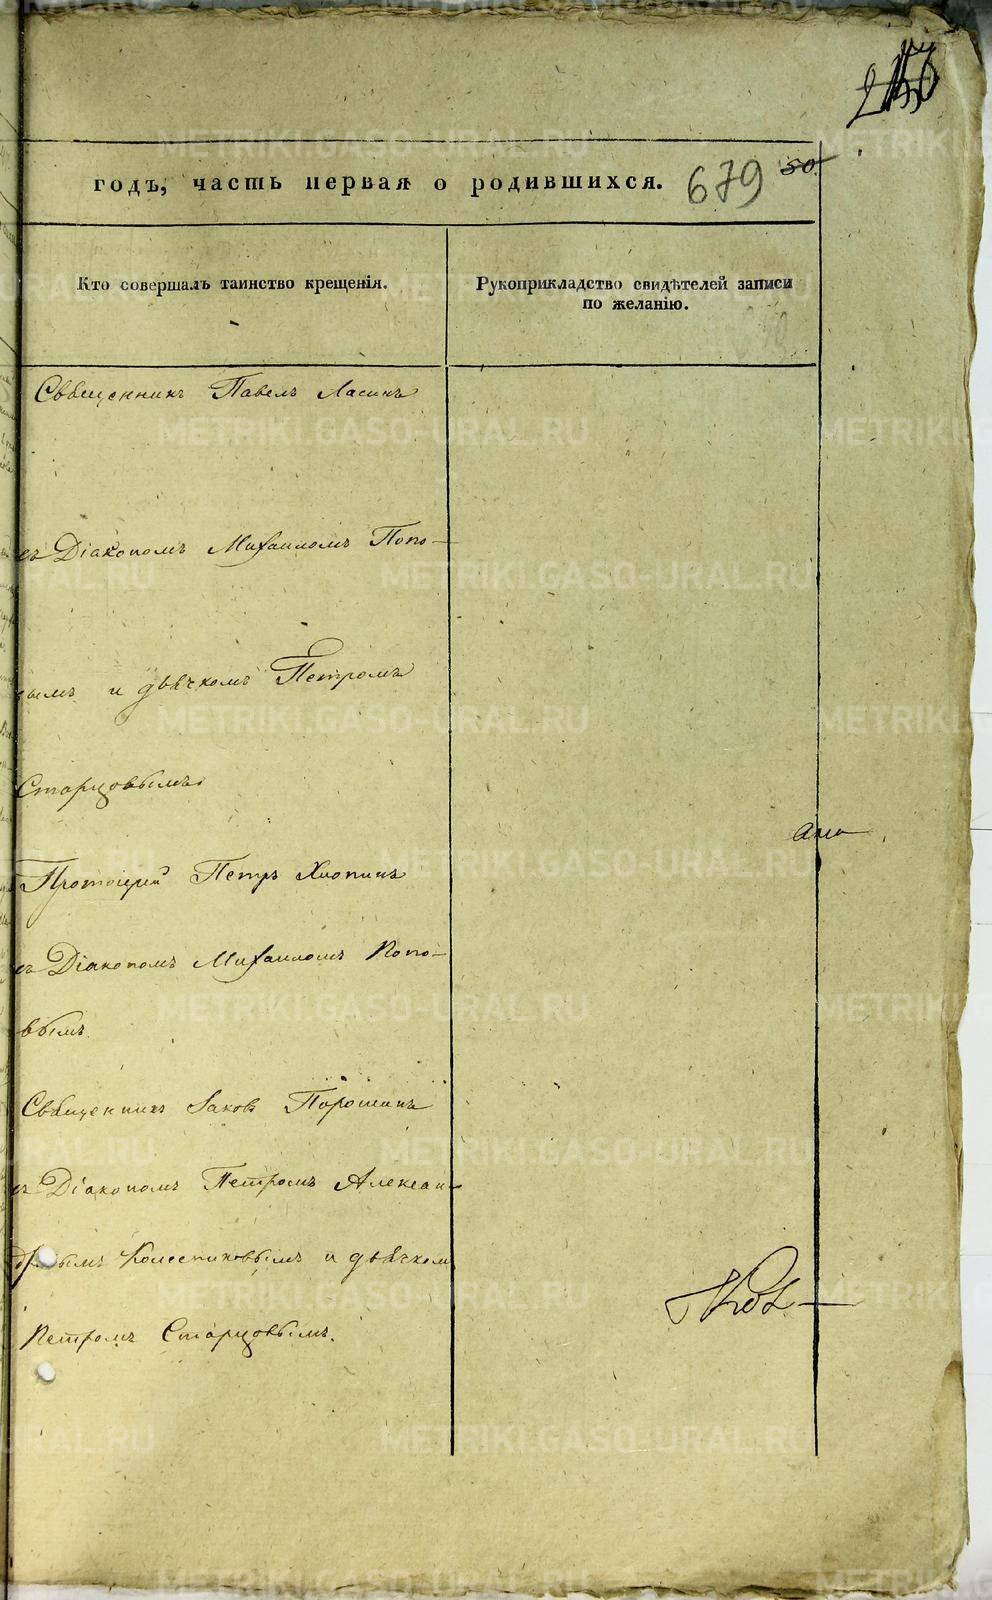 годъ, часть первая о родившихся. 679 50.
Кто совершалъ таинство крещенія.
Рукоприкладство свидѣтелей записи
по желанію.
Священникъ Павелъ
съ Діакономъ Михаиломъ Попо-
вымъ и дьячкомъ Петромъ
Старцовымъ
Протоіерей Петръ Хлопинъ
съ Діакономъ Михаиломъ Попо-
вымъ
Священникъ Іаковъ Порошинъ
съ Діакономъ Петромъ Алексан-
дровымъ Колесниковымъ и дьячкомъ
Петромъ Старцовымъ.
METRIKI.GASO-URAL.RU